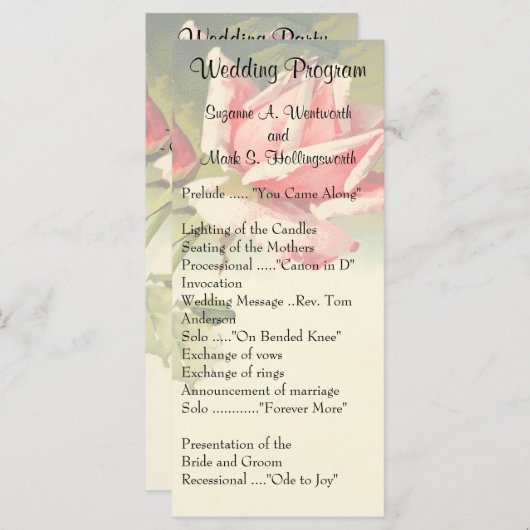 Wedding Party
Wedding Program
Suzanne A. Wentworth
and
Mark S. Hollingsworth
Prelude ..... "You Came Along"
Lighting of the Candles
Seating of the Mothers
Processional ....."Canon in D"
Invocation
Wedding Message ..Rev. Tom
Anderson
Solo ....."On Bended Knee"
Exchange of vows
Exchange of rings
Announcement of marriage
Solo ............"Forever More"
Presentation of the
Bride and Groom
Recessional ...."Ode to Joy"